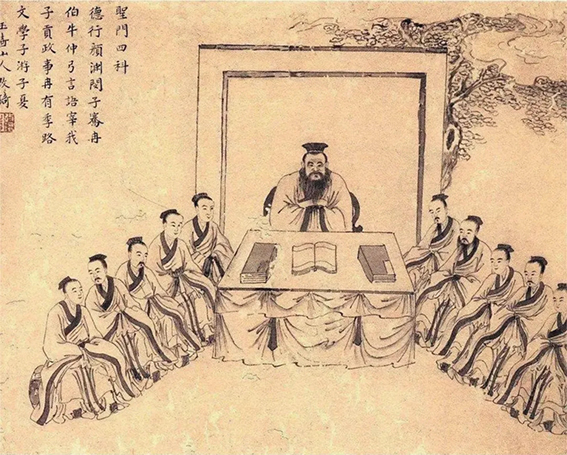 聖門四科
德行顏淵閔子騫冉
伯牛仲弓言語宰我
子貢政事冉有季路
文學子游子夏
玉壺山人改琦